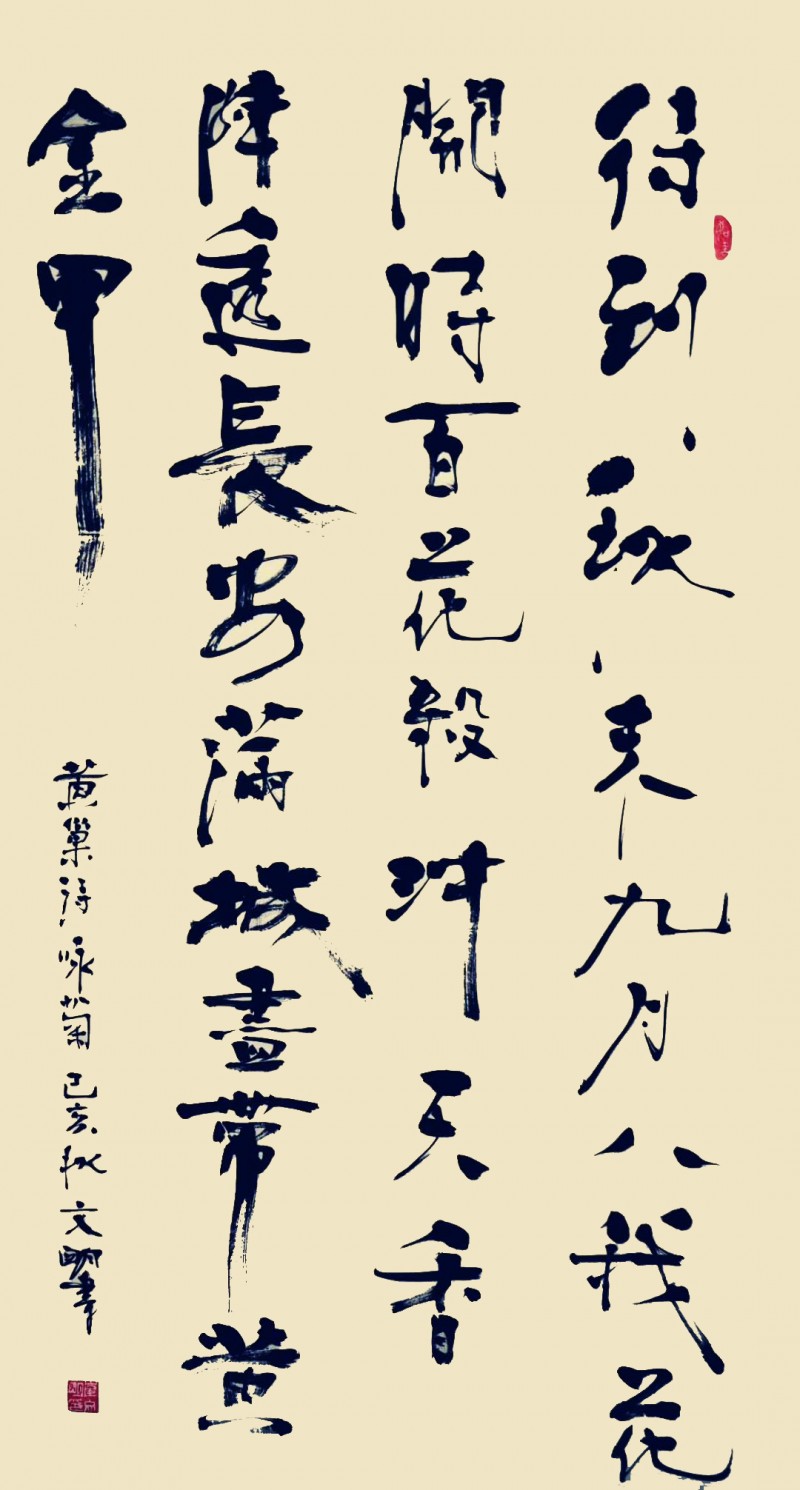 待到秋来九月八我花
開時百花殺沖天香
陣透長安滿城盡帶黄
金甲
黄巢詩咏菊 己亥秋文明書